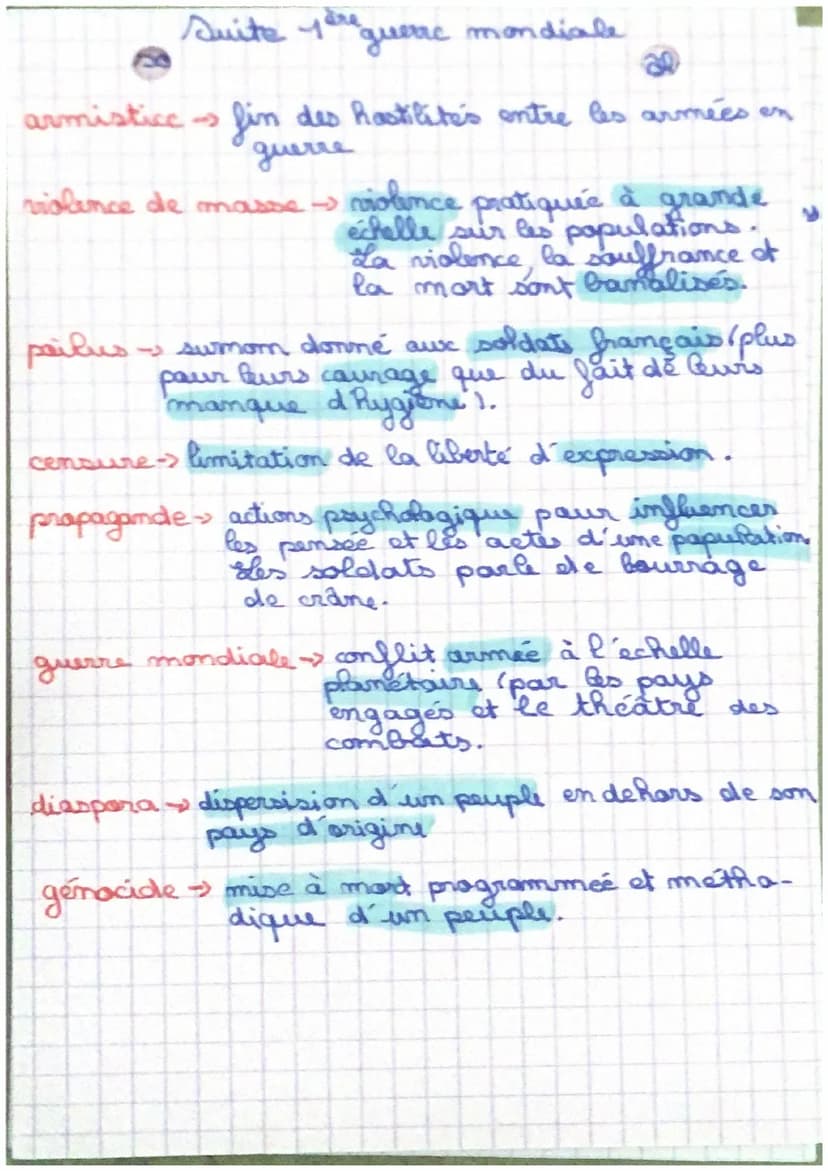 Suite 1ère guerre mondiale
armistice → fin des hostilités entre les armées en
guerre
violence de masse → violence pratiquée à grande
échelle sur les populations.
La violence, la souffrance et
la mort sont banalisés.
poilus → surnom donné aux soldats français (plus
pour leurs courage que du fait de leurs
manque d'hygiène).
censure → limitation de la liberté d'expression.
propagande → actions psychologique pour influencer
les pensée et les actes d'une population.
Les soldats parle de bourrage
de crâne.
guerre mondiale → conflit armée à l'échelle
planétaire (par les pays
engagés et le théâtre des
combats.
diaspora → dispersision d'un peuple en dehors de son
pays d'origine
génocide → mise à mort programmeé et métho-
dique d'un peuple.